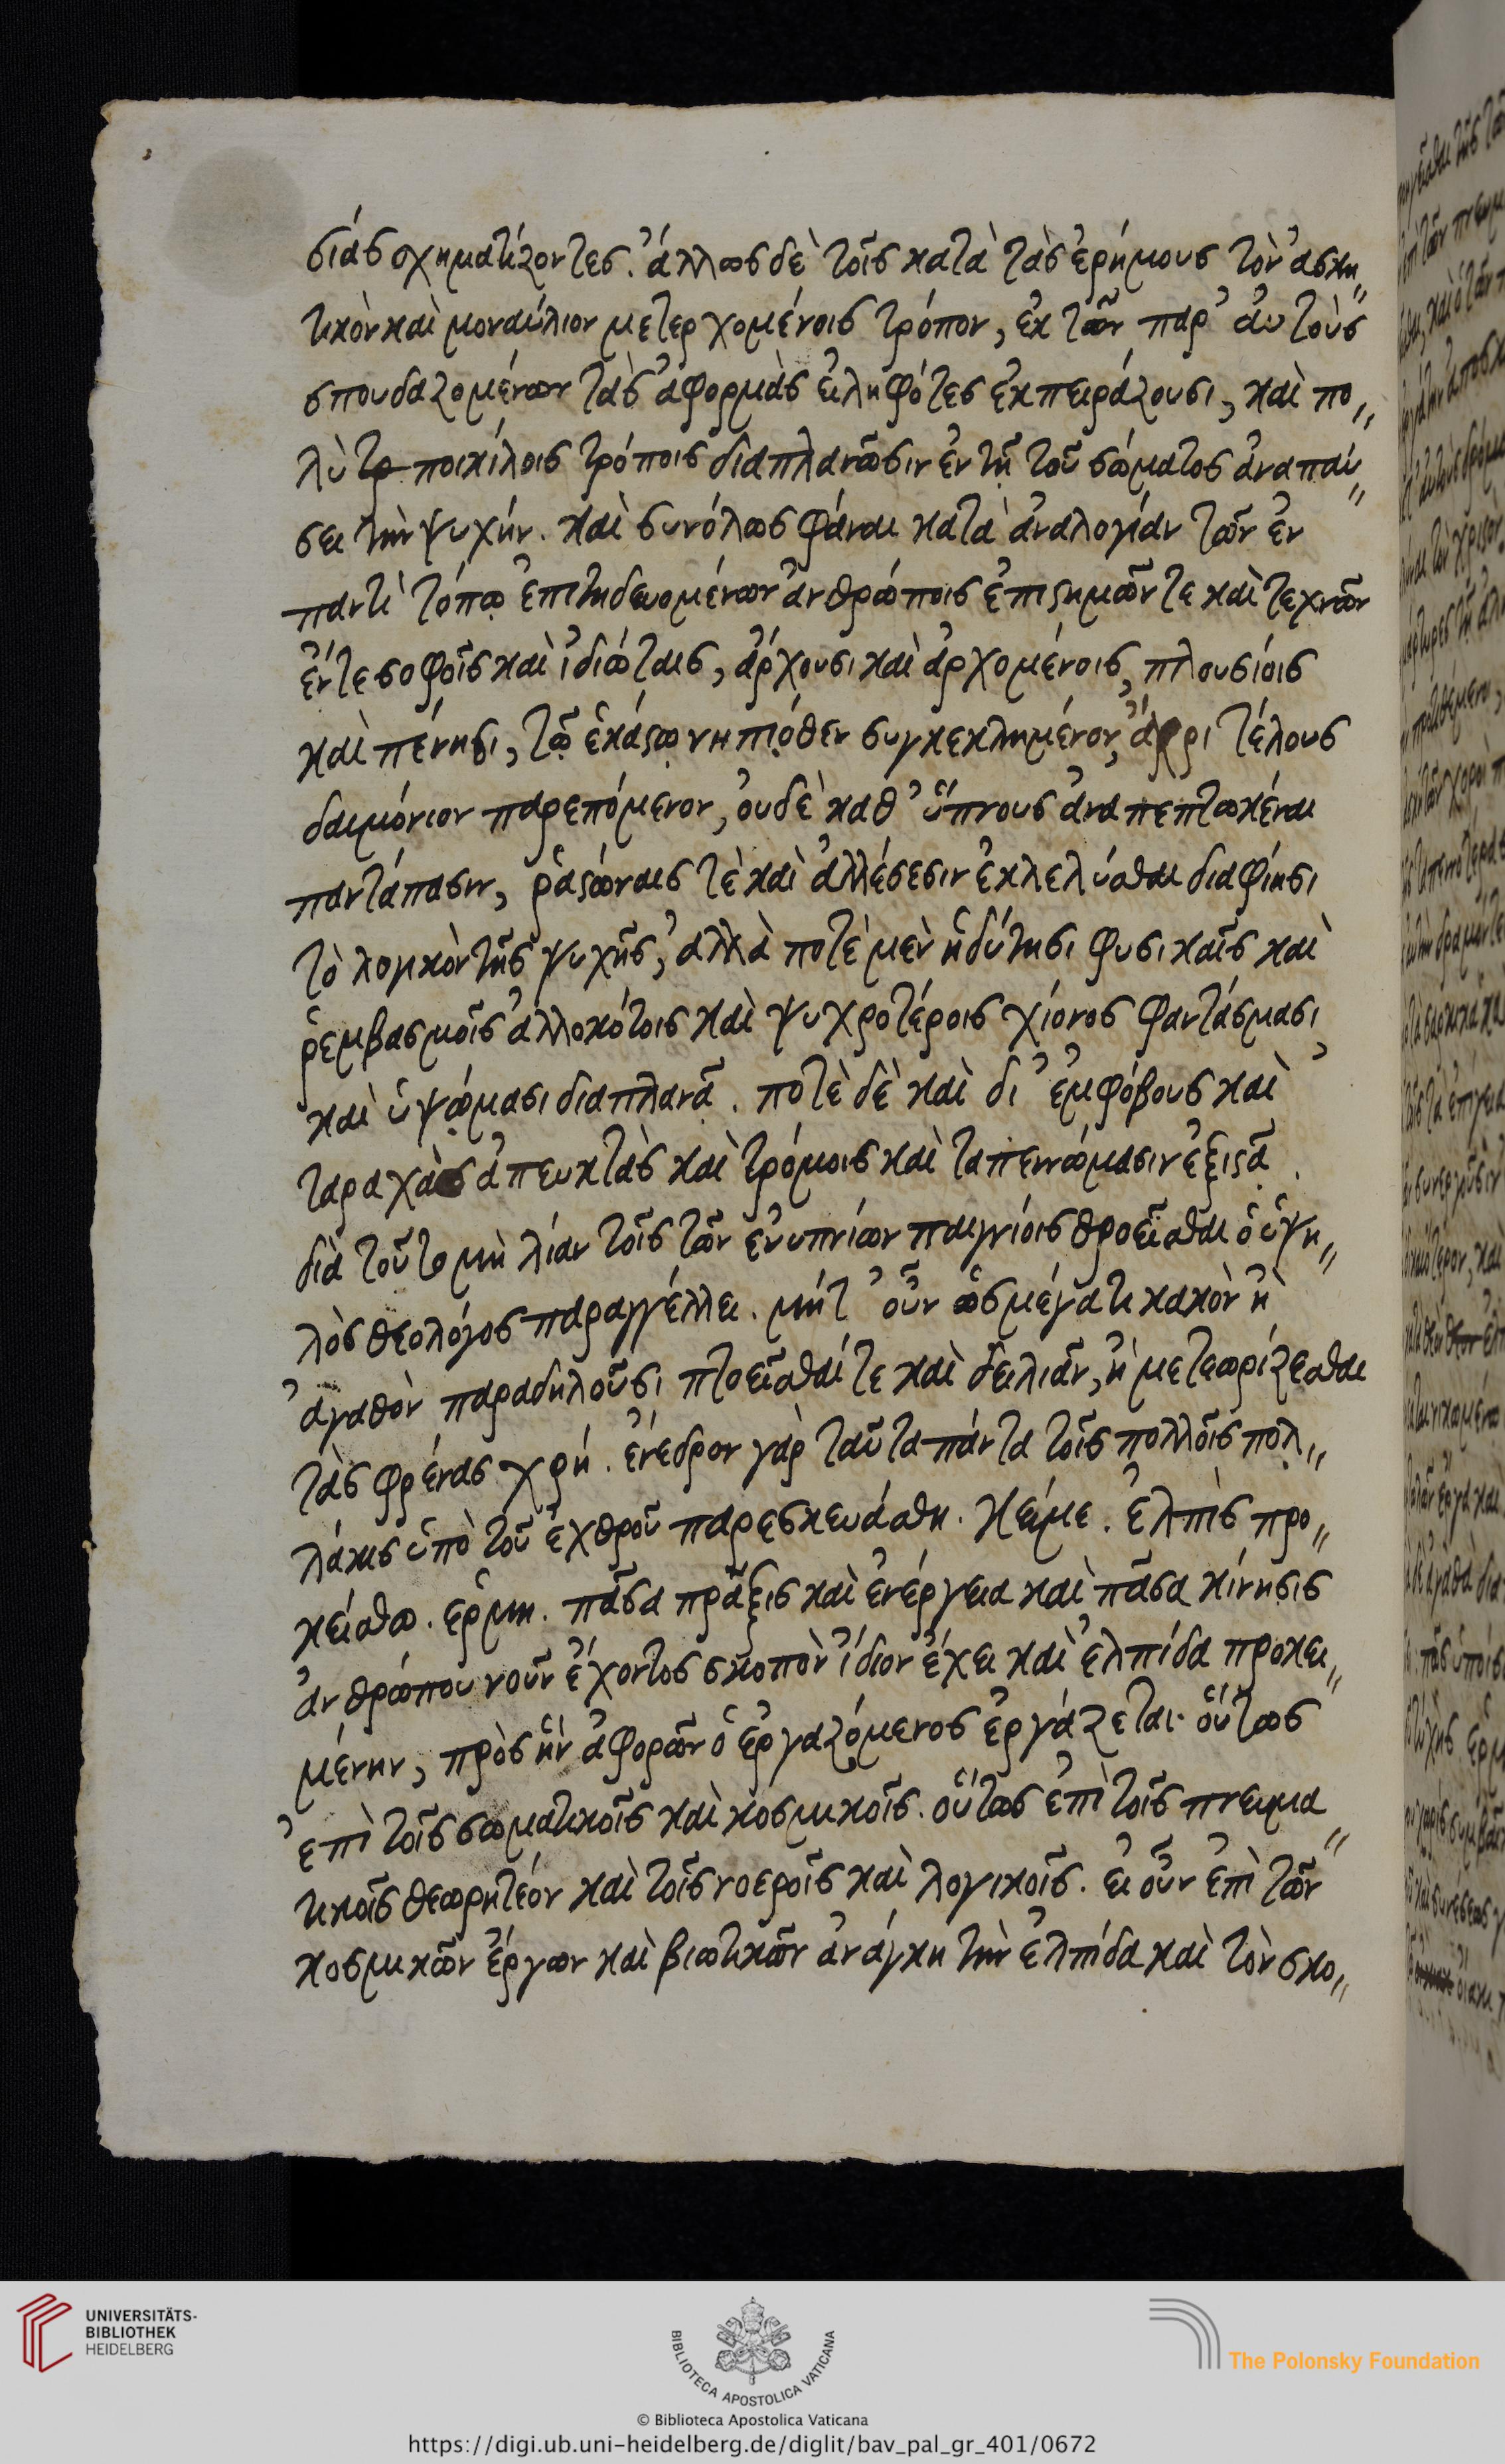 σιάς σχηματίζοντες. ἄλλως δὲ τοῖς κατὰ τὰς ἐρήμους τὸν ἀσκη„
τικὸν καὶ μοναύλιον μετερχομένοις τρόπον, ἐκ τῶν παρ' ἀυτοὺς
σπουδαζομένων τὰς ἀφορμὰς ἐιληφότες ἐκπειράζουσι, καὶ πο„
λὺ ποικίλοις τρόποις διαπλανῶσιν ἐν τῇ τοῦ σώματος ἀναπαύ„
σει τὴν ψυχήν. καὶ συνόλως φάναι κατὰ ἀναλογίαν τῶν ἐν
παντὶ τόπῳ ἐπιτηδευομένων ἀνθρώποις ἐπιϛημῶν τε καὶ τεχνῶν
ἔν τε σοφοῖς καὶ ἰδιώταις, ἄρχουσι καὶ ἀρχομένοις, πλουσίοις
καὶ πένησι, τῷ ἑκάϛῳ νηπιόθεν συγκεκλημένον, ἄχρι τέλους
δαιμόνιον παρεπόμενον, ὀυδὲ καθ' ὕπνους ἀναπεπτωκέναι
παντάπασιν, ῥαϛώναις τὲ καὶ ἀλλέσεσιν ἐκλελύσθαι διαφίησι
τὸ λογικὸν τῆς ψυχῆς, ἀλλὰ ποτὲ μὲν ἡδύτησι φυσικαῖς καὶ
ῥεμβασμοῖς ἀλλοκότοις καὶ ψυχροτέροις χιόνος φαντάσμασι
καὶ ὑψώμασι διαπλανᾷ. ποτὲ δὲ καὶ δι' ἐμφόβους καὶ
ταραχὰς ἀπευκτὰς καὶ τρόμοις καὶ ταπεινώμασιν ἐξιϛᾷ.
διὰ τοῦτο μὴ λίαν τοῖς τῶν ἐνυπνίων παιγνίοις θροεῖσθαι ὁ ὑψη„
λὸς θεολόγος παραγγέλλει. μήτ' οὖν ὡς μέγα τι κακὸν ἢ
ἀγαθὸν παραδηλοῦσι πτοεῖσθαί τε καὶ δειλιᾶν, ἢ μετεωρίζεσθαι
τὰς φρένας χρή. ἔνεδρον γὰρ ταῦτα πάντα τοῖς πολλοῖς πολ„
λάκις ὑπὸ τοῦ ἐχθροῦ παρεσκευάσθη. κείμε. ἐλπὶς προ„
κείσθω. ἑρμη. πᾶσα πρᾶξις καὶ ἐνέργεια καὶ πᾶσα κίνησις
ἀνθρώπου νοῦν ἔχοντος σκοπὸν ἴδιον ἔχει καὶ ἐλπίδα προκει„
μένην, πρὸς ἣν ἀφορῶν ὁ ἐργαζόμενος ἐργάζεται. οὕτως
ἐπὶ τοῖς σωματικοῖς καὶ κοσμικοῖς. οὕτως ἐπὶ τοῖς πνευμα„
τικοῖς θεωρητέον καὶ τοῖς νοεροῖς καὶ λογικοῖς. ἐι οὖν ἐπὶ τῶν
κοσμικῶν ἔργων καὶ βιωτικῶν ἀνάγκη τὴν ἐλπίδα καὶ τὸν σκο„
UNIVERSITÄTS-
BIBLIOTHEK
HEIDELBERG
BIBLIOTECA APOSTOLICA VATICANA
The Polonsky Foundation
© Biblioteca Apostolica Vaticana
https://digi.ub.uni-heidelberg.de/diglit/bav_pal_gr_401/0672